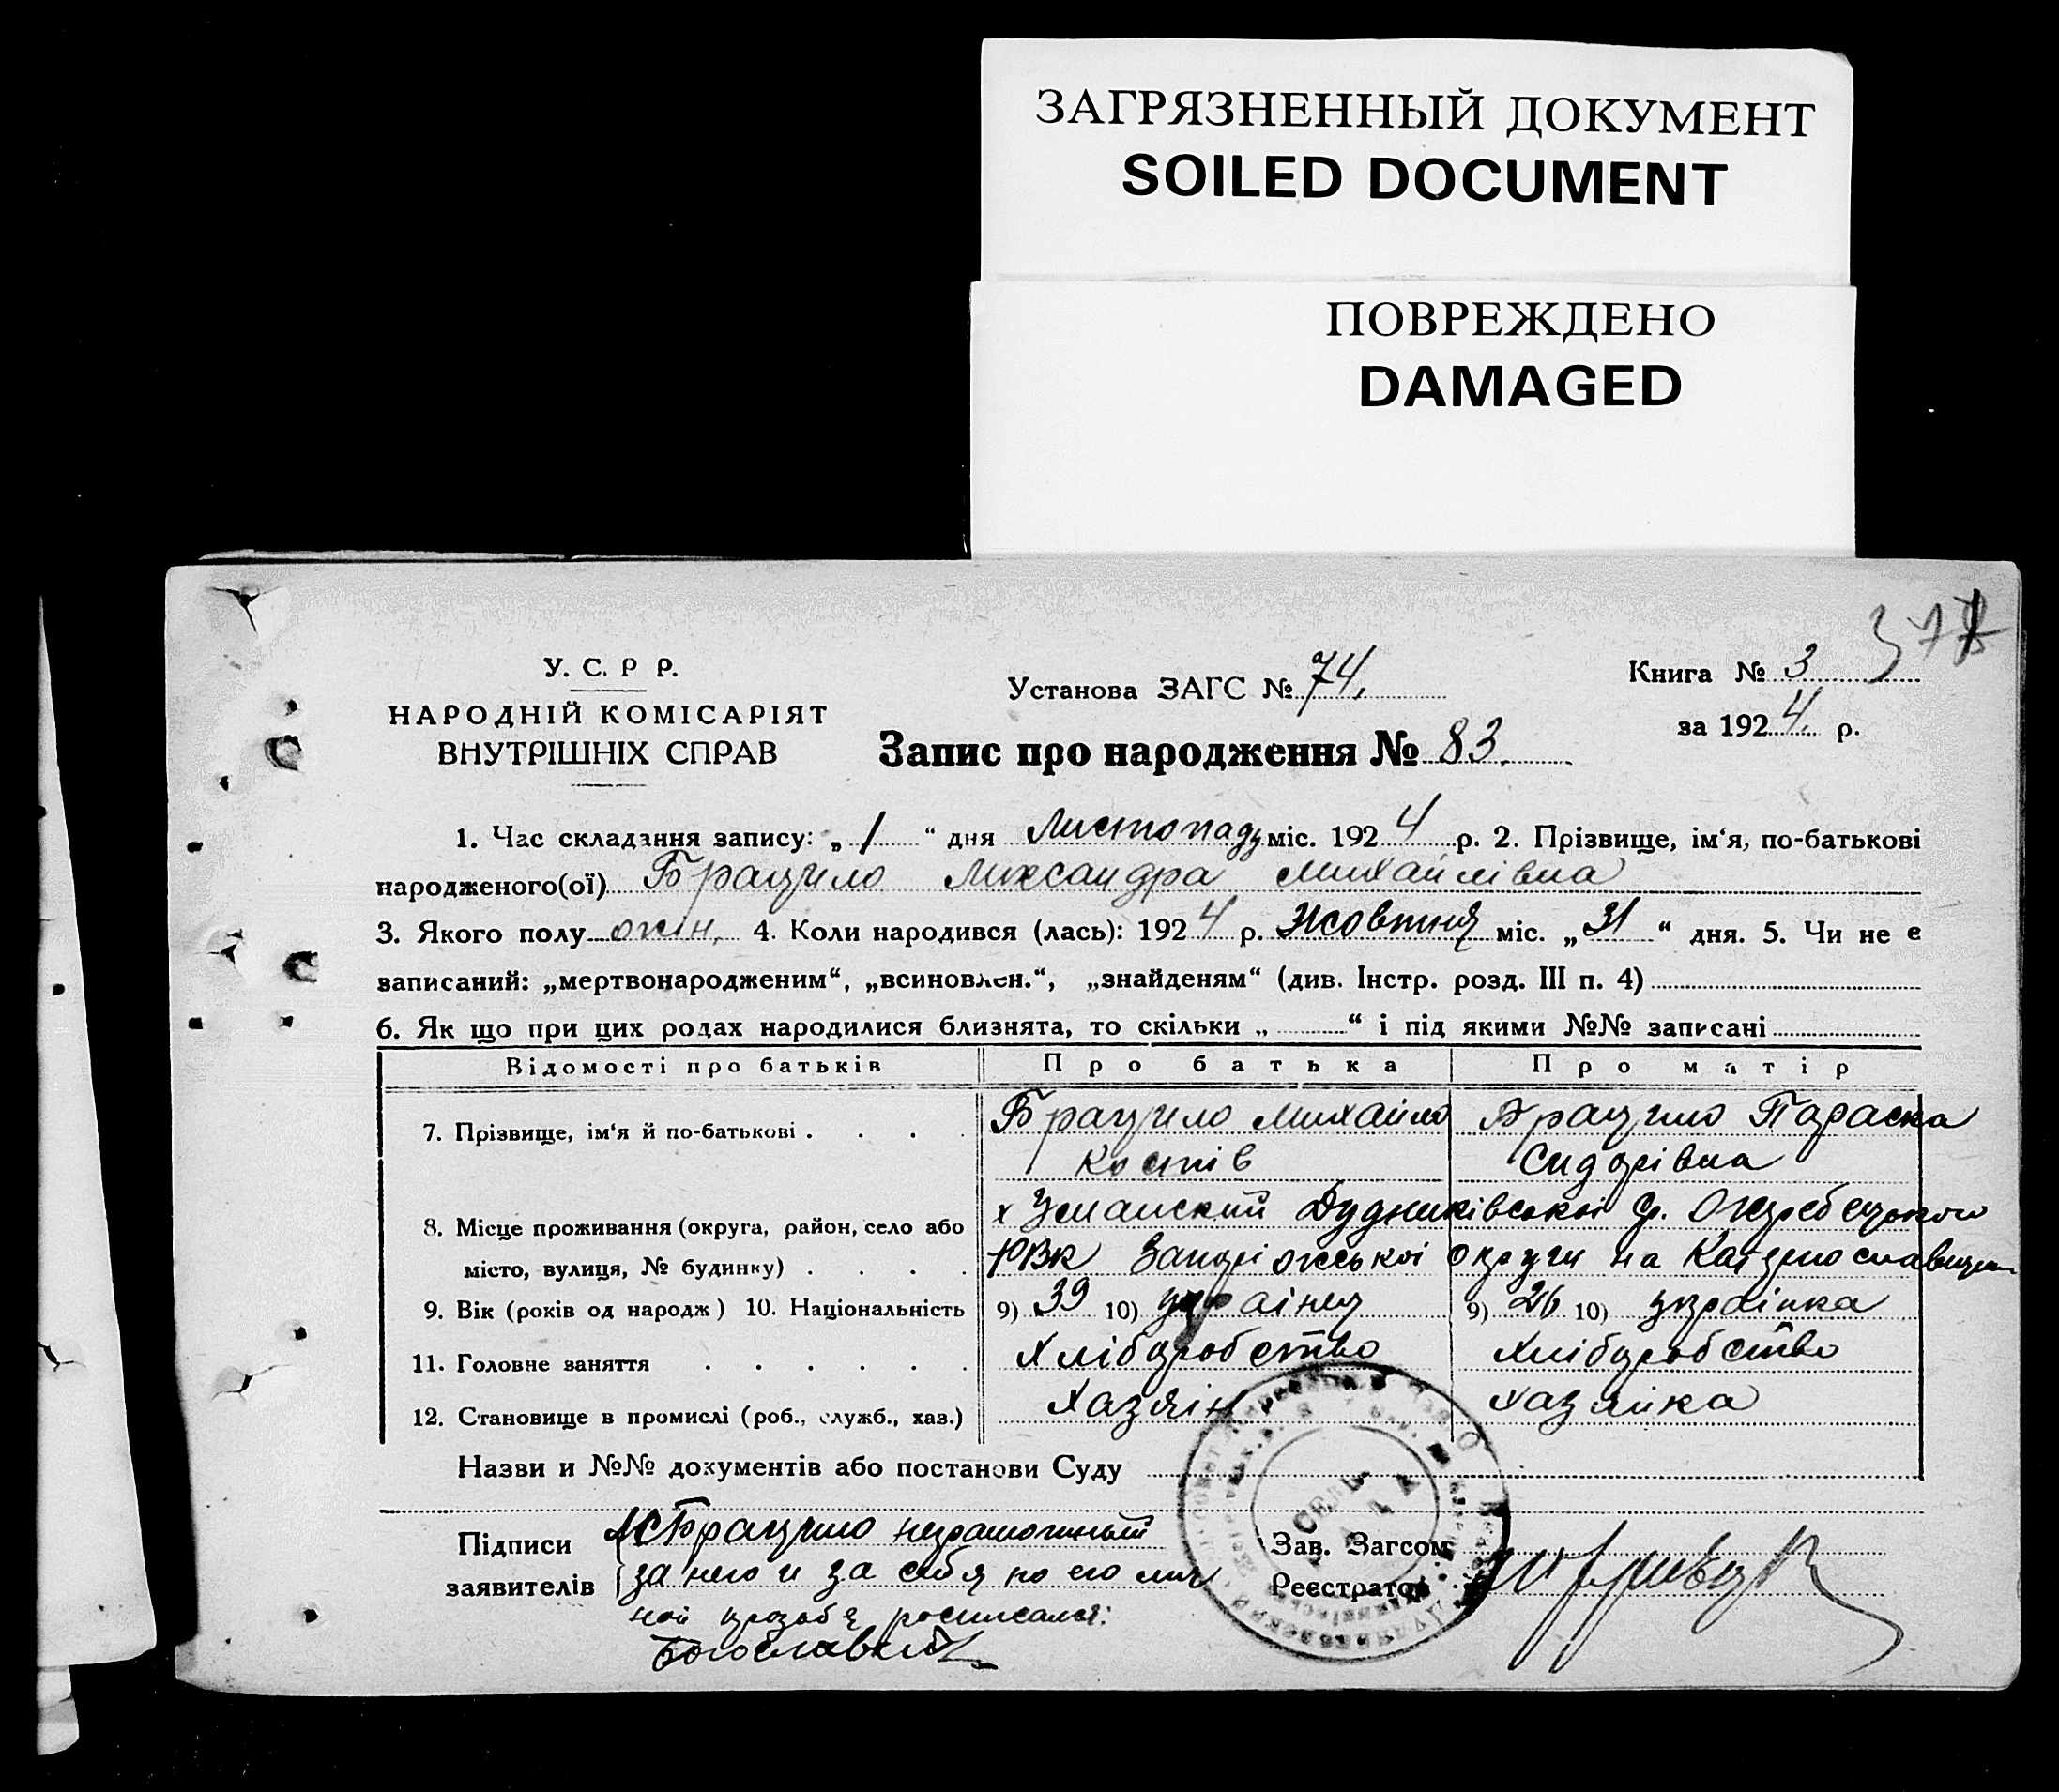 ЗАГРЯЗНЕННЫЙ ДОКУМЕНТ
SOILED DOCUMENT
ПОВРЕЖДЕНО
DAMAGED
У. С. Р Р.
НАРОДНІЙ КОМІСАРІЯТ
ВНУТРІШНІХ СПРАВ
Установа ЗАГС № 74.
Книга № 3
за 1924 р.
Запис про народження № 83.
1. Час складання запису: „1“ дня Листопаду міс. 1924 р. 2. Прізвище, ім‘я, по-батькові
народженого(ої) Брацило Лександра Михайлівна
3. Якого полу жін. 4. Коли народився (лась): 1924 р. Жовтня міс. „31“ дня. 5. Чи не є
записаний: „мертвонародженим“, „всиновлен.“, „знайденям“ (див. Інстр. розд. III п. 4)
6. Як що при цих родах народилися близнята, то скільки „ “ і під якими №№ записані
Відомості про батьків Про батька Про матір
7. Прізвище, ім‘я й по-батькові . . . . Брацило Михайло Брацило Параска
Костів Сидорівна
8. Місце проживання (округа, район, село або х Уманский Дудниківської Жеребецького
місто, вулиця, № будинку) . . . . РВК Запоріжської округи на
9. Вік (років од народж) 10. Національність 9) 39 10) українец 9) 26 10) українка
11. Головне заняття . . . . . . Хліборобство Хліборобство
12. Становище в промислі (роб., служб., хаз.) Хазяін хазяйка
Назви и №№ документів або постанови Суду
Підписи Брацило неграмотный Зав. Загсом
заявителів за него и за себя по его лич Реєстратор
ной прозьбе росписался:
СЕЛЬ
РАДА